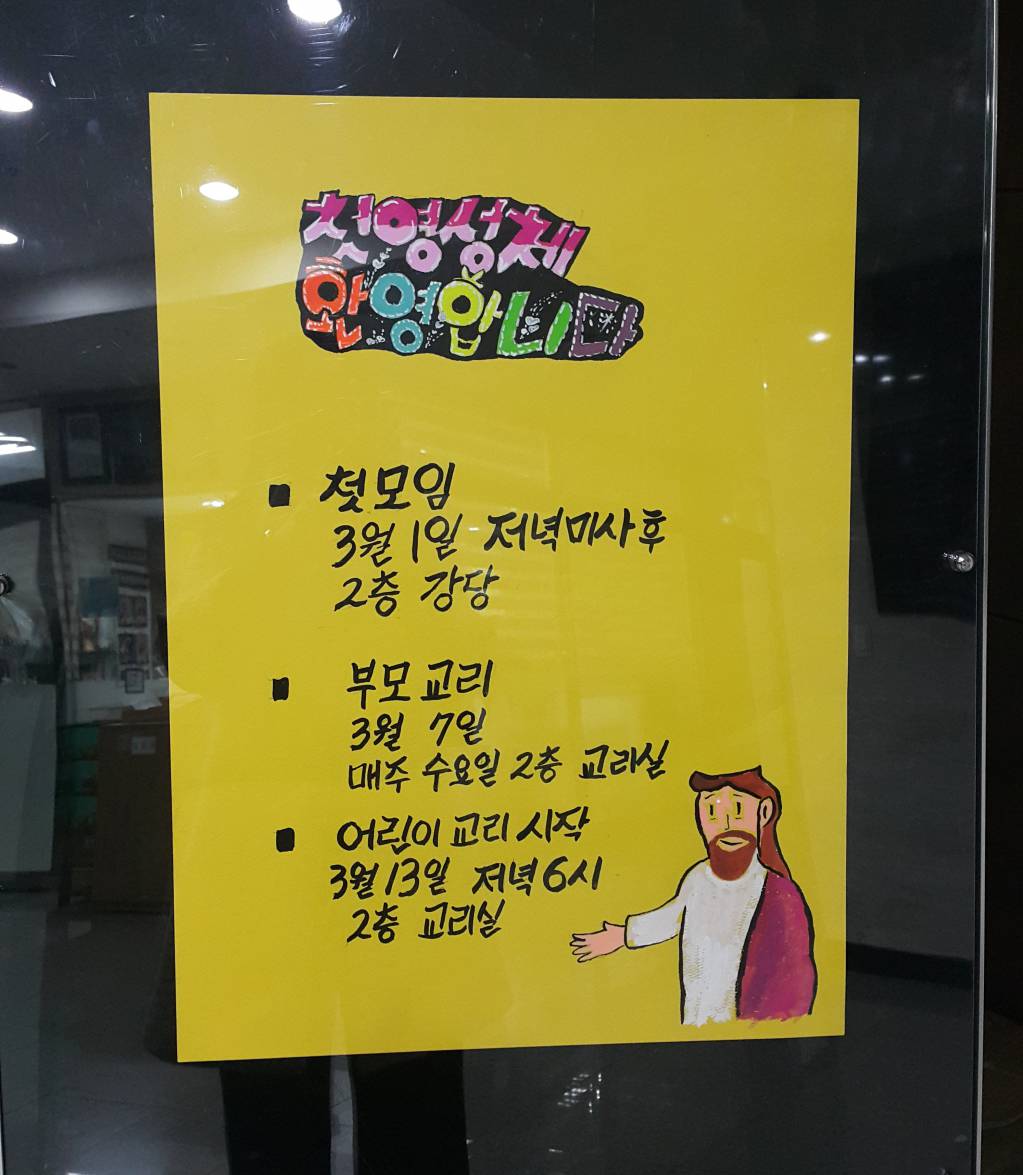 첫영성체
환영합니다
■ 첫모임
3월 1일 저녁미사 후
2층 강당
■ 부모교리
3월 7일
매주 수요일 2층 교리실
■ 어린이 교리 시작
3월 13일 저녁 6시
2층 교리실